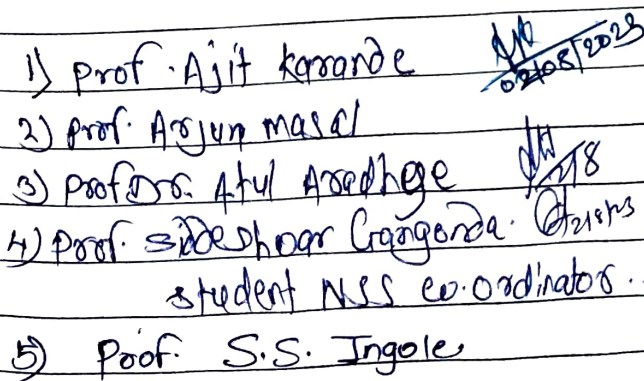 1) Prof. Ajit Karande 02/08/2023
2) Prof. Arjun masal
3) Prof Dr. Atul Aradhge 2/8
4) Prof. Sideshwar Gangonda.
student NSS co-ordinator.
5) Prof. S.S. Ingole